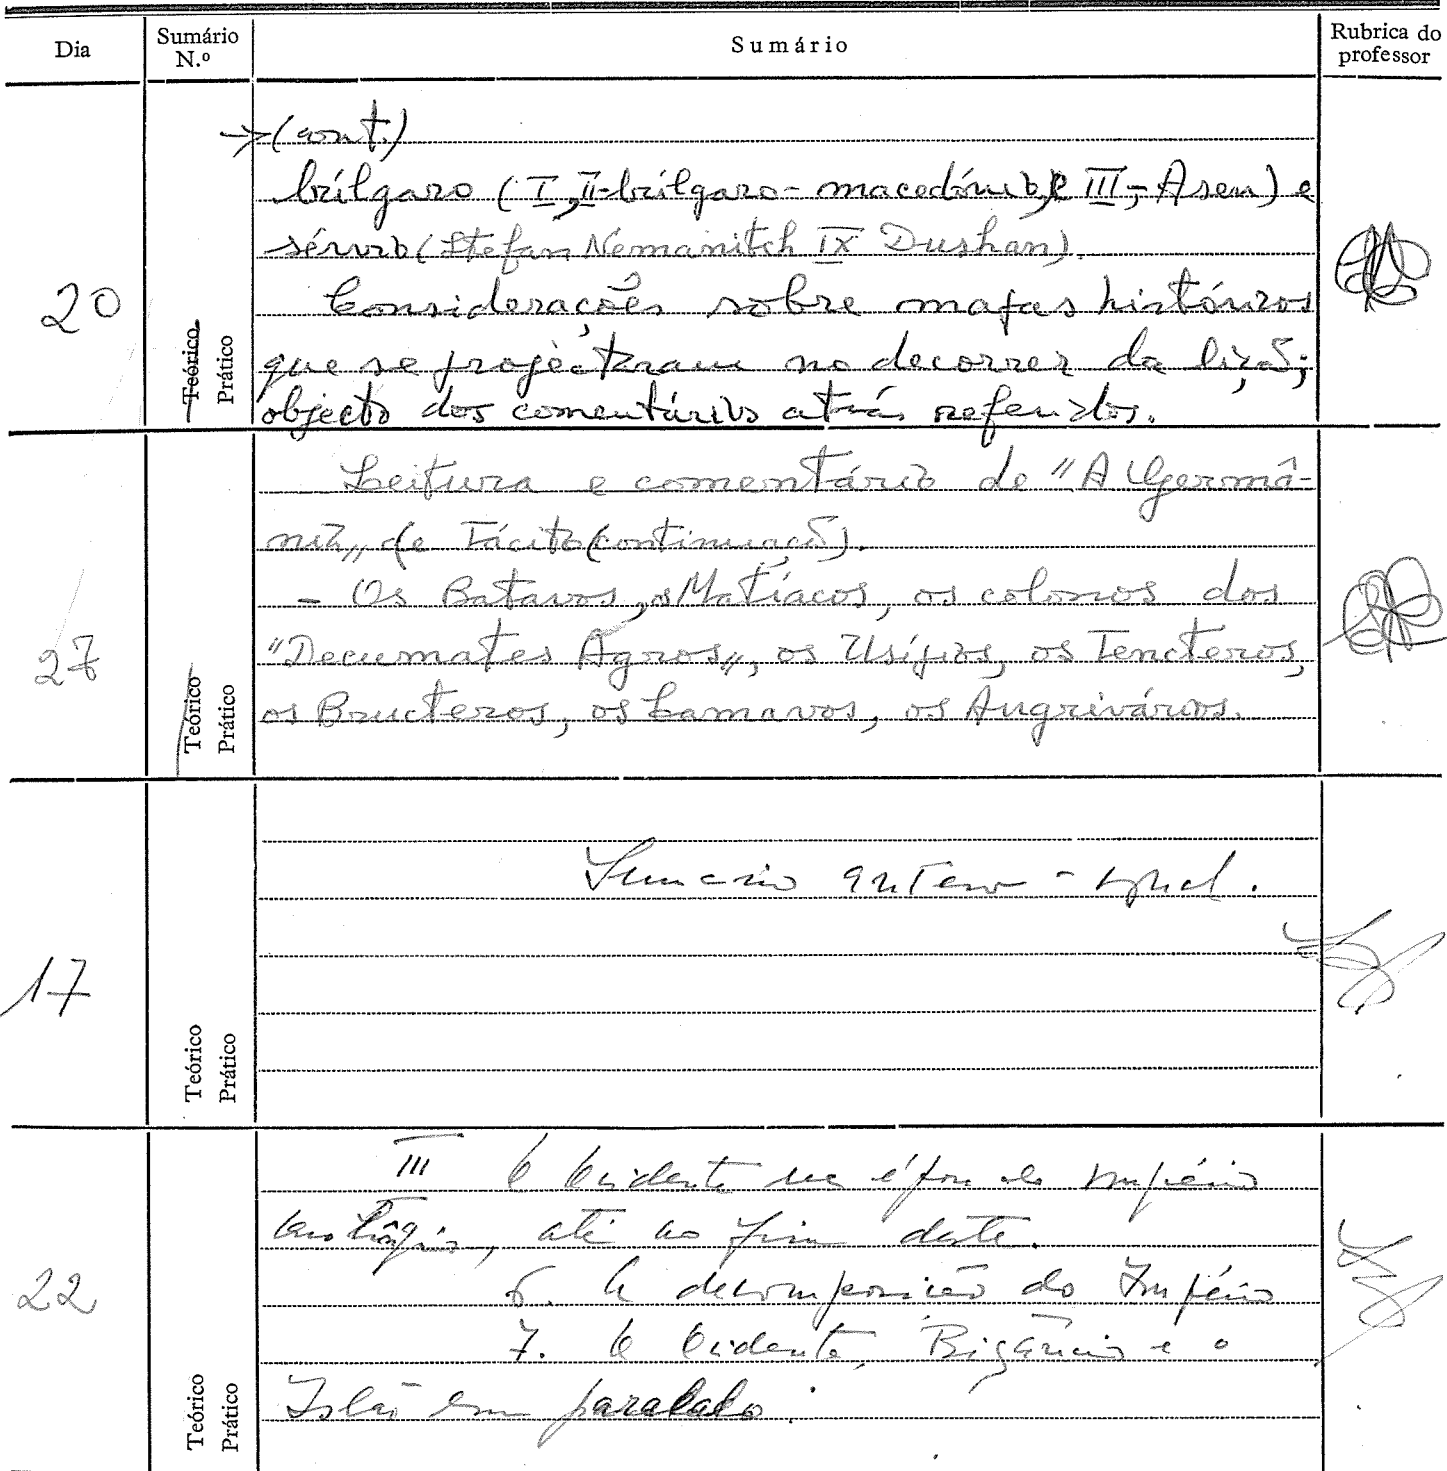 Dia
Sumário N.º
Sumário
Rubrica do professor
→(cont.)
búlgaro (I, II-búlgaro-macedónio, e III, - Asen) e
sérvio (Stefan Nemanitch IX Dushan).
20
Considerações sobre mapas históricos
que se projectaram no decorrer da lição;
objecto dos comentários atrás referidos.
Teórico
Prático
Leitura e comentário de "A Germâ-
nia" de Tácito (continuação).
- Os Batavos, os Matíacos, os colonos dos
27
"Decumates Agros", os Usípios, os Tencteros,
os Bructeros, os Camavos, os Angrivários.
Teórico
Prático
Sumário anterior - igual.
17
Teórico
Prático
III O Ocidente na época do Império
carolíngio, até ao fim deste.
22
6. A decomposição do Império
7. O Ocidente, Bizâncio e o
Islão em paralelo.
Teórico
Prático